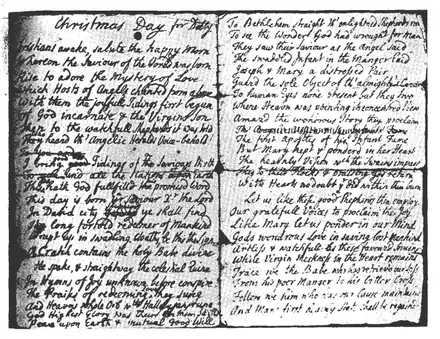 Christmas Day for Dolly
Christians awake, salute the happy Morn
Whereon the Saviour of the World was born
Rise to adore the Mystery of Love
Which Hosts of Angels chanted from above
With them the joyfull Tidings first begun
Of God incarnate & the Virgins Son
Then to the watchfull Shepherds it was told
They heard th' Angelic Herald's Voice behold
I bring good Tidings of the Saviours Birth
to you and all the Nations upon Earth
This Day hath God fullfilld the promised Word
This day is born a Saviour the Lord
In Davids city ye shall find
The long foretold redeemer of Mankind
Wrapt up in swadling Cloaths, be this the Sign
A Cratch contains the holy Babe divine
He spake, & straightway the celestial Quire
In Hymns of Joy unknown before conspire
The Praises of redeeming Love they sung
And Heavns whole Orb with Hallelujahs rung
Gods Highest Glory was their Anthem still
Peace upon Earth & mutual Good Will
To Bethlehem straight th' enlightned Shepherds ran
To see the Wonder God had wrought for Man
They saw their Saviour as the Angel said
The swaddled Infant in the Manger laid
Joseph & Mary a distressed Pair
Guard the sole Object of th' almighty's Care
To human Eyes none present but they two
Where Heavn was
Amazd the wondrous Story they proclaim
The first Apostles of his Infant Fame
But Mary kept & ponderd in her Heart
The heavenly Vision
They to their Flocks & praising God return
With Hearts no doubt that within them burn
Let us like these good Shepherds then employ
Our gratefull Voices to proclaim the Joy
Like Mary let us ponder in our Mind
Gods wondrous Love in saving lost Mankind
Artless & watchfull as these favourd Swains
While Virgin Meekness in the Heart remains
Trace we the Babe who has retrieved our Loss
From his poor Manger to his bitter Cross
Follow we him who has our Cause maintaind
And Mans first Heavnly State shall be regaind